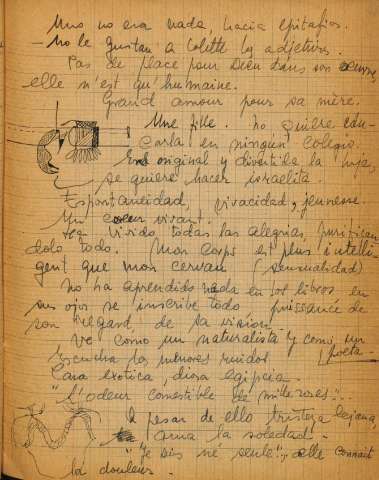 Uno no era nada hacia epitafios.
- No le gustan a Colette los adjetivos.
Pas de place pour Dieu dans son œuvre,
elle n'est qu'humaine.
Grand amour pour sa mère.
Une fille. No quiere edu-
carla en ningún colegio.
Era original y divertida la hija,
se quiere hacer israelita.
Espontaneidad, vivacidad, jeunesse.
Un cœur vivant.
Ha vivido todas las alegrías, purifican
dolo todo. Mon corps est plus intelli
gent que mon cerveau (sensualidad)
No ha aprendido nada en los libros en
sus ojos se inscribe todo puissance de
son regard, de sa vision.
Ve como un naturalista y como un
poeta.
Escucha los menores ruidos
Cara exotica, diosa egipcia.
"L'odeur comestible de mille roses"...
A pesar de ello tristeza lejana,
ama la soledad.
"Je suis né seule"; elle connait
la douleur.